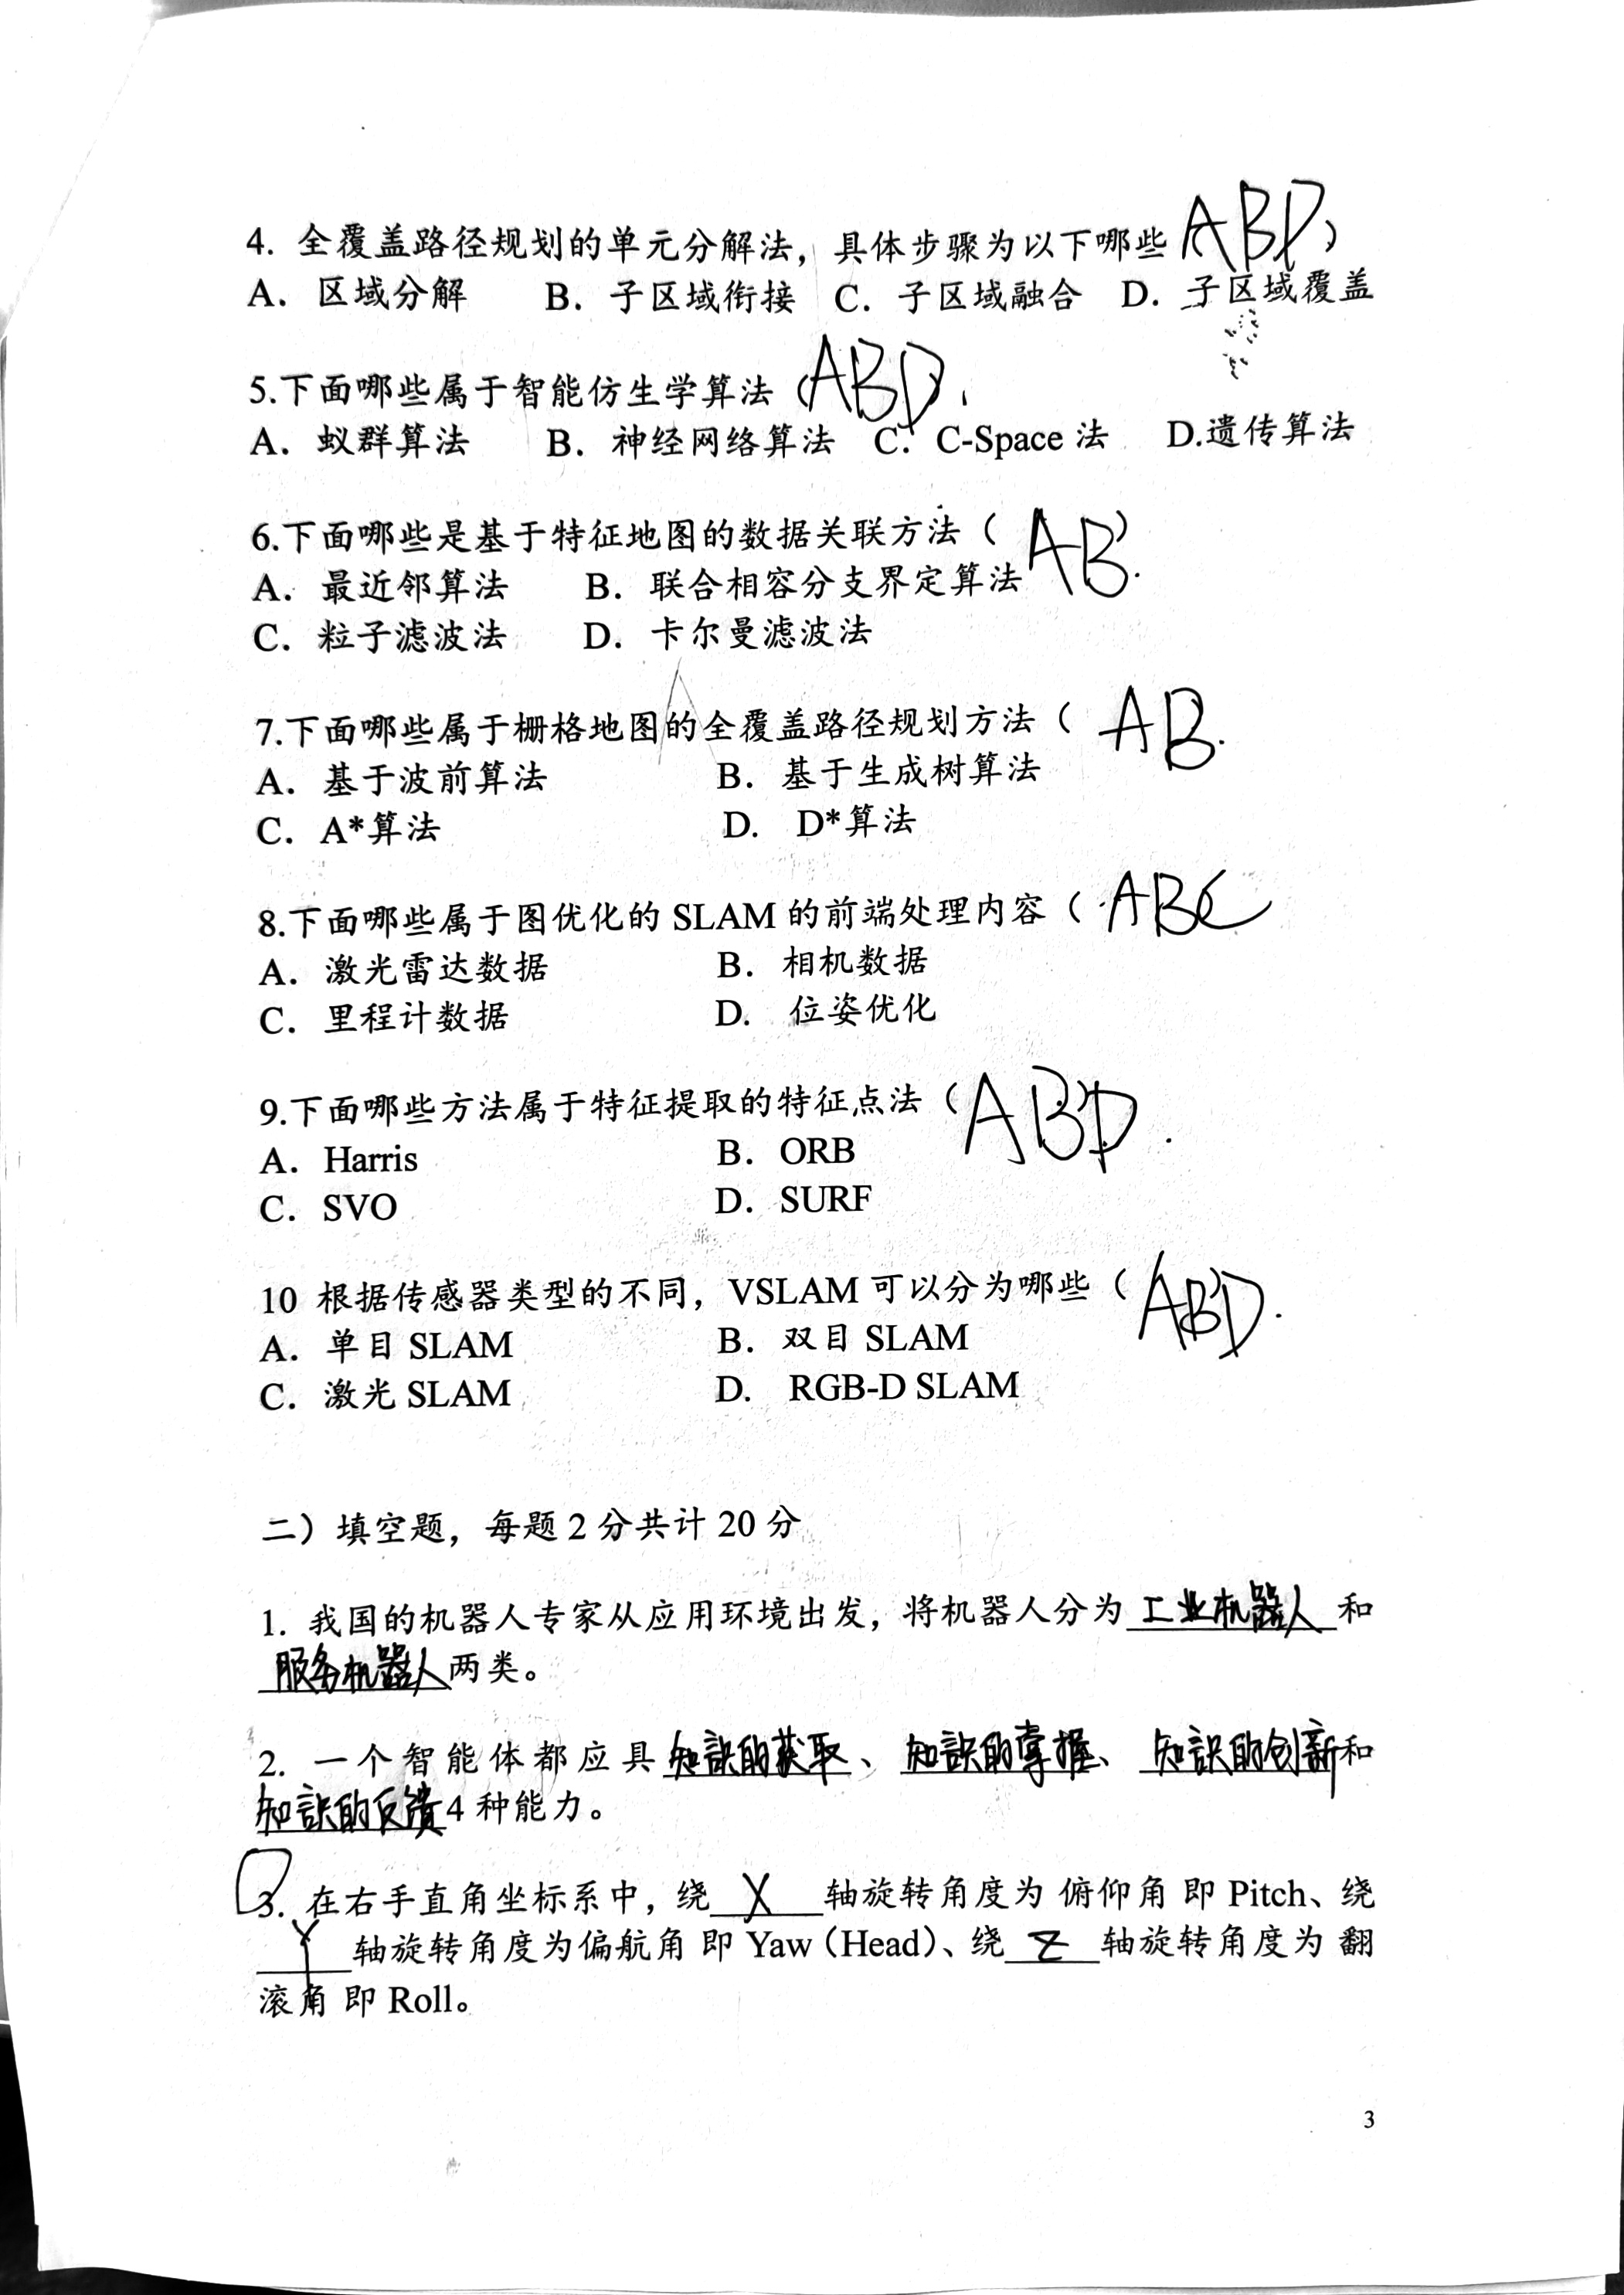 4. 全覆盖路径规划的单元分解法，具体步骤为以下哪些 ABD)
A. 区域分解 B. 子区域衔接 C. 子区域融合 D. 子区域覆盖
5.下面哪些属于智能仿生学算法（ABD）
A. 蚁群算法 B. 神经网络算法 C. C-Space 法 D.遗传算法
6.下面哪些是基于特征地图的数据关联方法（ AB）
A. 最近邻算法 B. 联合相容分支界定算法
C. 粒子滤波法 D. 卡尔曼滤波法
7.下面哪些属于栅格地图的全覆盖路径规划方法（ AB.
A. 基于波前算法 B. 基于生成树算法
C. A*算法 D. D*算法
8.下面哪些属于图优化的 SLAM 的前端处理内容（ ABC
A. 激光雷达数据 B. 相机数据
C. 里程计数据 D. 位姿优化
9.下面哪些方法属于特征提取的特征点法（ABD）.
A. Harris B. ORB
C. SVO D. SURF
10 根据传感器类型的不同，VSLAM 可以分为哪些（ABD）.
A. 单目 SLAM B. 双目 SLAM
C. 激光 SLAM D. RGB-D SLAM
二）填空题，每题 2 分共计 20 分
1. 我国的机器人专家从应用环境出发，将机器人分为 工业机器人 和
服务机器人 两类。
2. 一个智能体都应具 知識的获取、 知識的掌握、 知識的创新 和
知識的反馈 4 种能力。
3. 在右手直角坐标系中，绕 X 轴旋转角度为 俯仰角 即 Pitch、绕
Y 轴旋转角度为偏航角 即 Yaw（Head）、绕 Z 轴旋转角度为 翻
滚角 即 Roll。
3